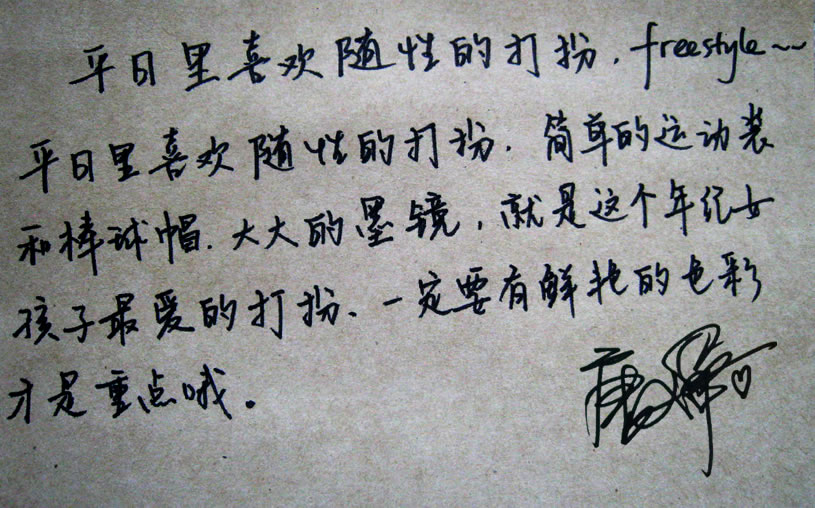 平日里喜欢随性的打扮，freestyle~~
平日里喜欢随性的打扮，简单的运动装
和棒球帽，大大的墨镜，就是这个年纪女
孩子最爱的打扮、一定要有鲜艳的色彩
才是重点哦。